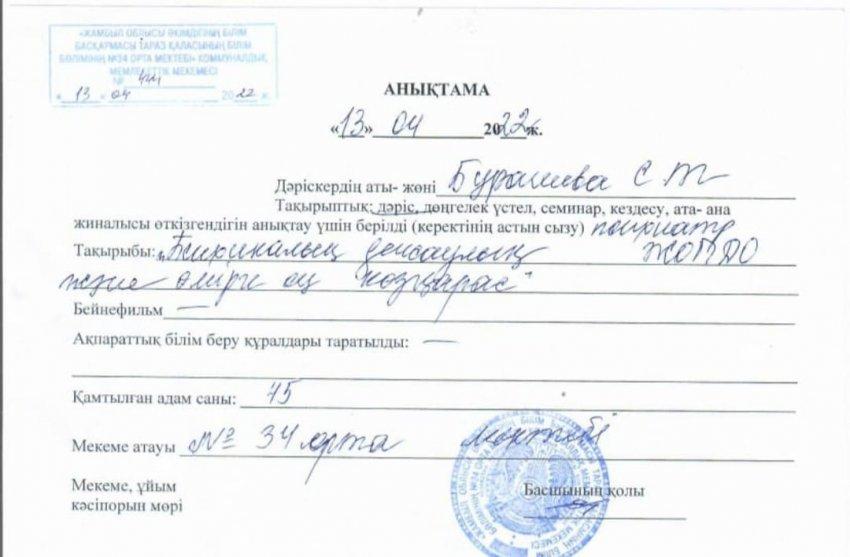 «ЖАМБЫЛ ОБЛЫСЫ ӘКІМДІГІНІҢ БІЛІМ
БАСҚАРМАСЫ ТАРАЗ ҚАЛАСЫНЫҢ БІЛІМ
БӨЛІМІНІҢ №34 ОРТА МЕКТЕБІ» КОММУНАЛДЫҚ
МЕМЛЕКЕТТІК МЕКЕМЕСІ
№ 444
« 13 » 04 2022 ж.
АНЫҚТАМА
«13» 04 2022ж.
Дәріскердің аты- жөні Бурашева С Т
Тақырыптық: дәріс, дөңгелек үстел, семинар, кездесу, ата- ана
жиналысы өткізгендігін анықтау үшін берілді (керектінің астын сызу) психиатр
Тақырыбы: „ денсаулық ЖОПДО
және өмірге оң көзқарас"
Бейнефильм —
Ақпараттық білім беру құралдары таратылды: —
Қамтылған адам саны: 45
Мекеме атауы № 34 орта мектебі
Мекеме, ұйым
кәсіпорын мөрі
Басшының қолы